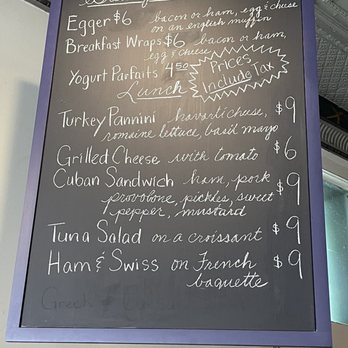 Egger $6 bacon or ham, egg & cheese
on an english muffin
Breakfast Wraps $6 bacon or ham,
egg & cheese
Yogurt Parfaits 4.50
Prices
Include Tax
Lunch
Turkey Pannini havarti cheese, $9
romaine lettuce, basil mayo
Grilled Cheese with tomato $6
Cuban Sandwich ham, pork $9
provolone, pickles, sweet
pepper, mustard
Tuna Salad on a croissant $9
Ham & Swiss on French $9
baguette
Greek